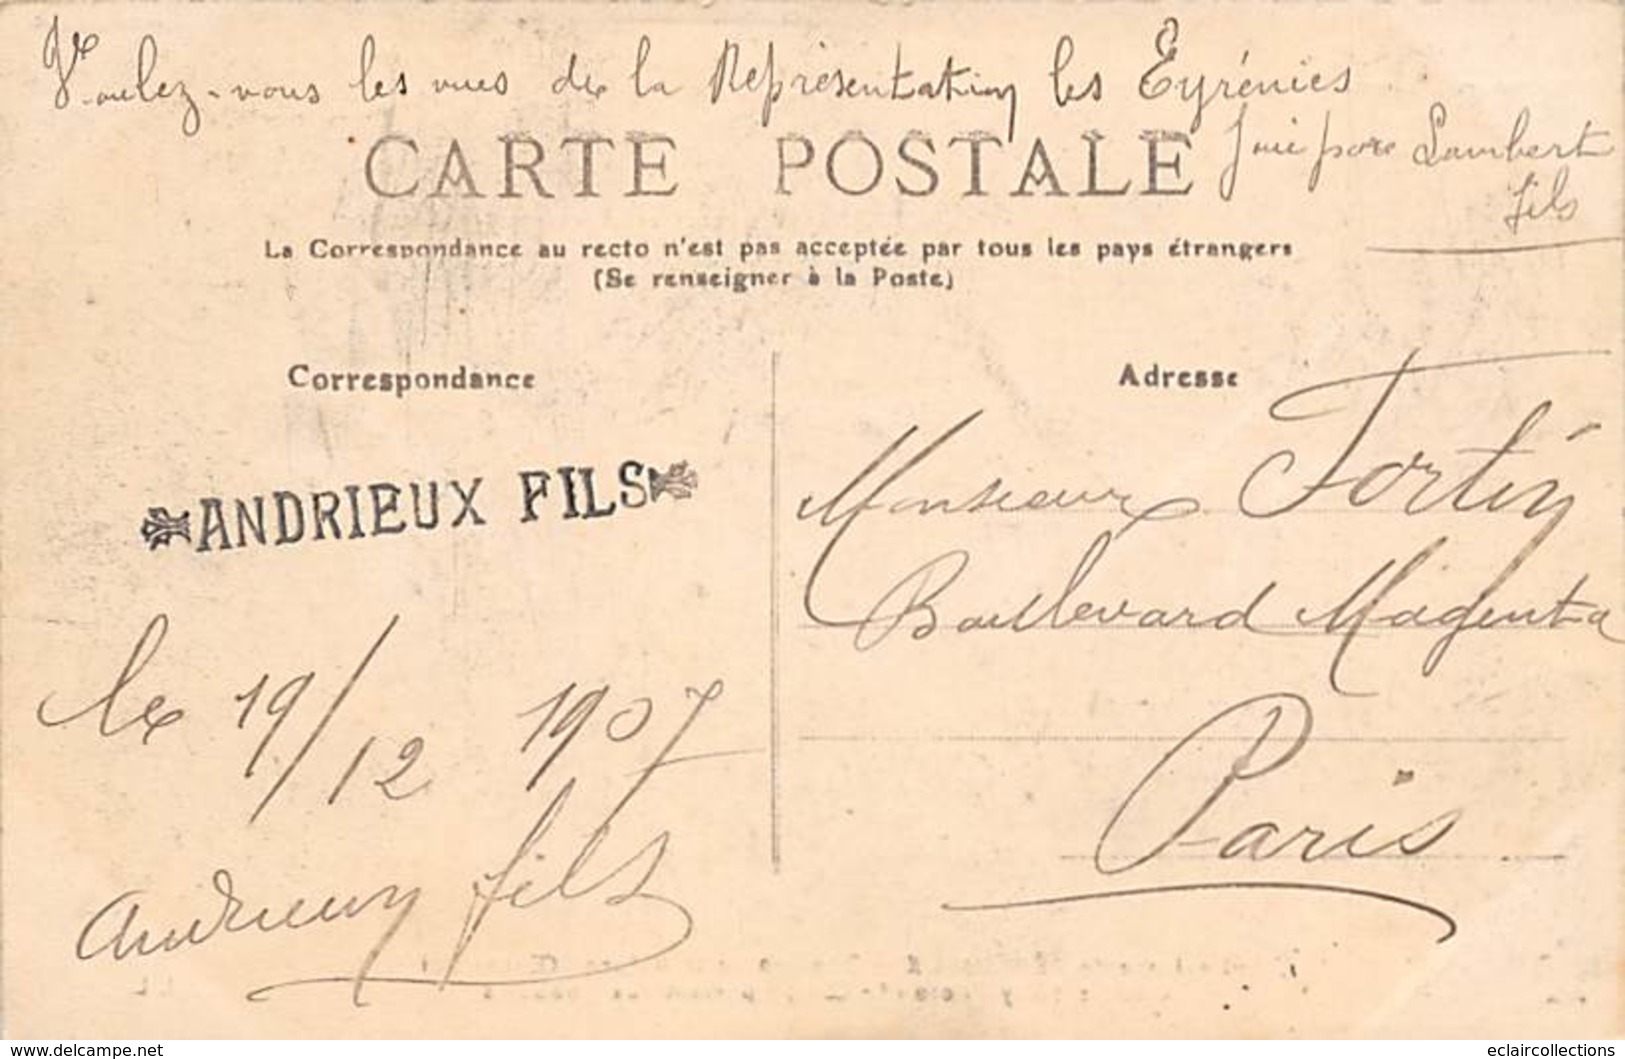 Voulez-vous les vues de la Représentation les Eyrénies
par Lambert
fils
CARTE POSTALE
La Correspondance au recto n'est pas acceptée par tous les pays étrangers
(Se renseigner à la Poste)
Correspondance
Adresse
ANDRIEUX FILS
Monsieur Fortin
Boullevard Magenta
Paris
le 19/12 1907
Andrieux fils
www.delcampe.net
eclaircollections